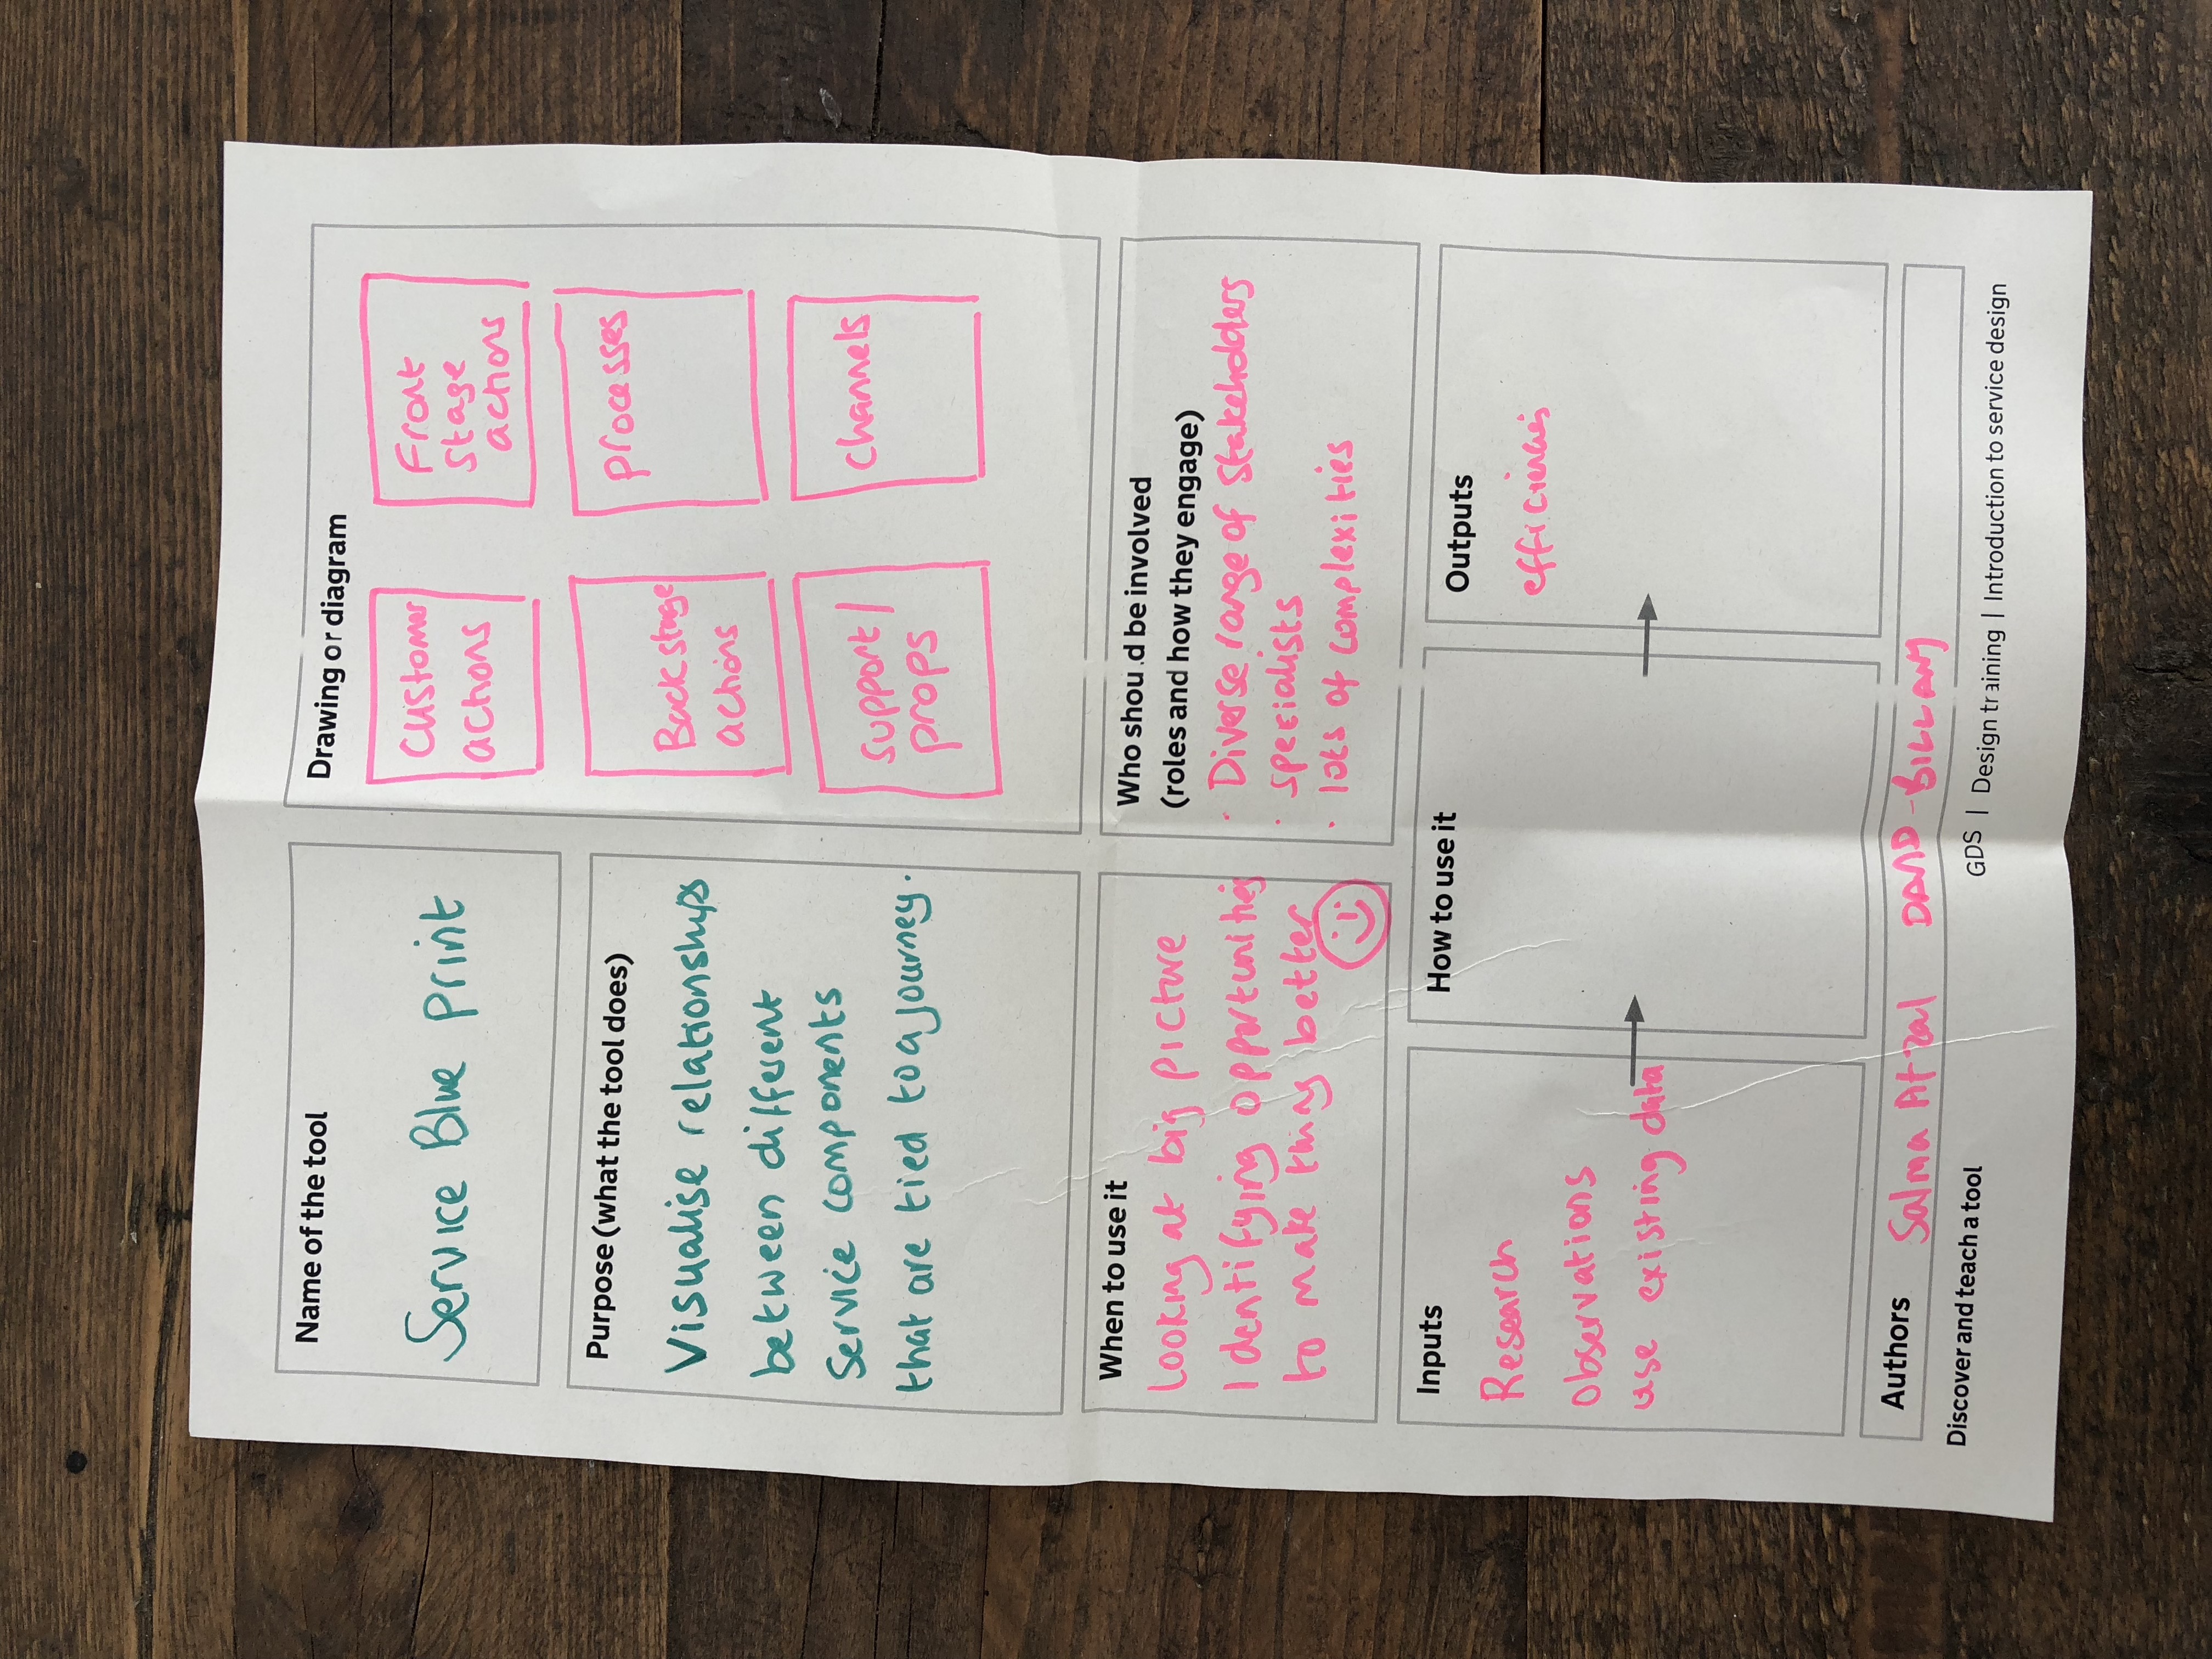 Name of the tool
Service Blue print
Purpose (what the tool does)
Visualise relationships
between different
service components
that are tied to a journey.
Drawing or diagram
Customer
actions
Front
stage
actions
Back stage
actions
processes
support /
props
channels
When to use it
Looking at big picture
Identifying opportunities
to make things better
Who should be involved
(roles and how they engage)
· Diverse range of stakeholders
· specialists
· lots of complexities
Inputs
Research
Observations
use existing data
How to use it
Outputs
efficiencies
Authors
Salma
Discover and teach a tool
GDS | Design training | Introduction to service design